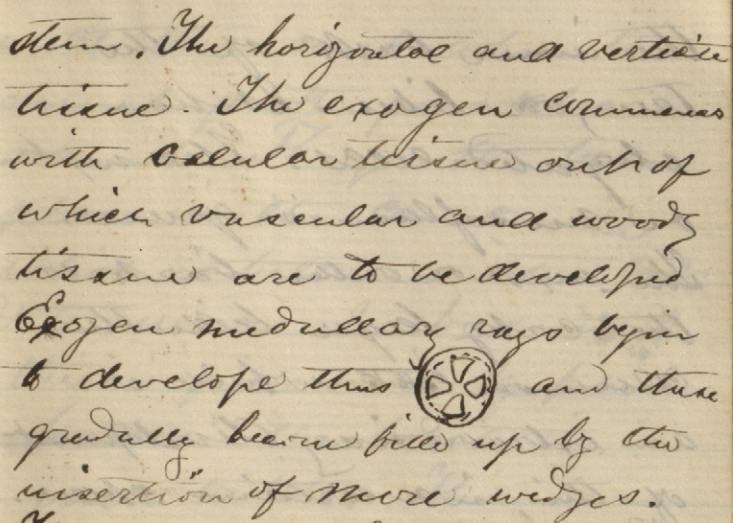 stem. The horizontal and vertical
tissue. The exogen commences
with celular tissue out of
which vascular and woody
tissue are to be developed
Exogen medullary rays begin
to develope thus and these
gradually become filled up by the
insertion of more wedges.